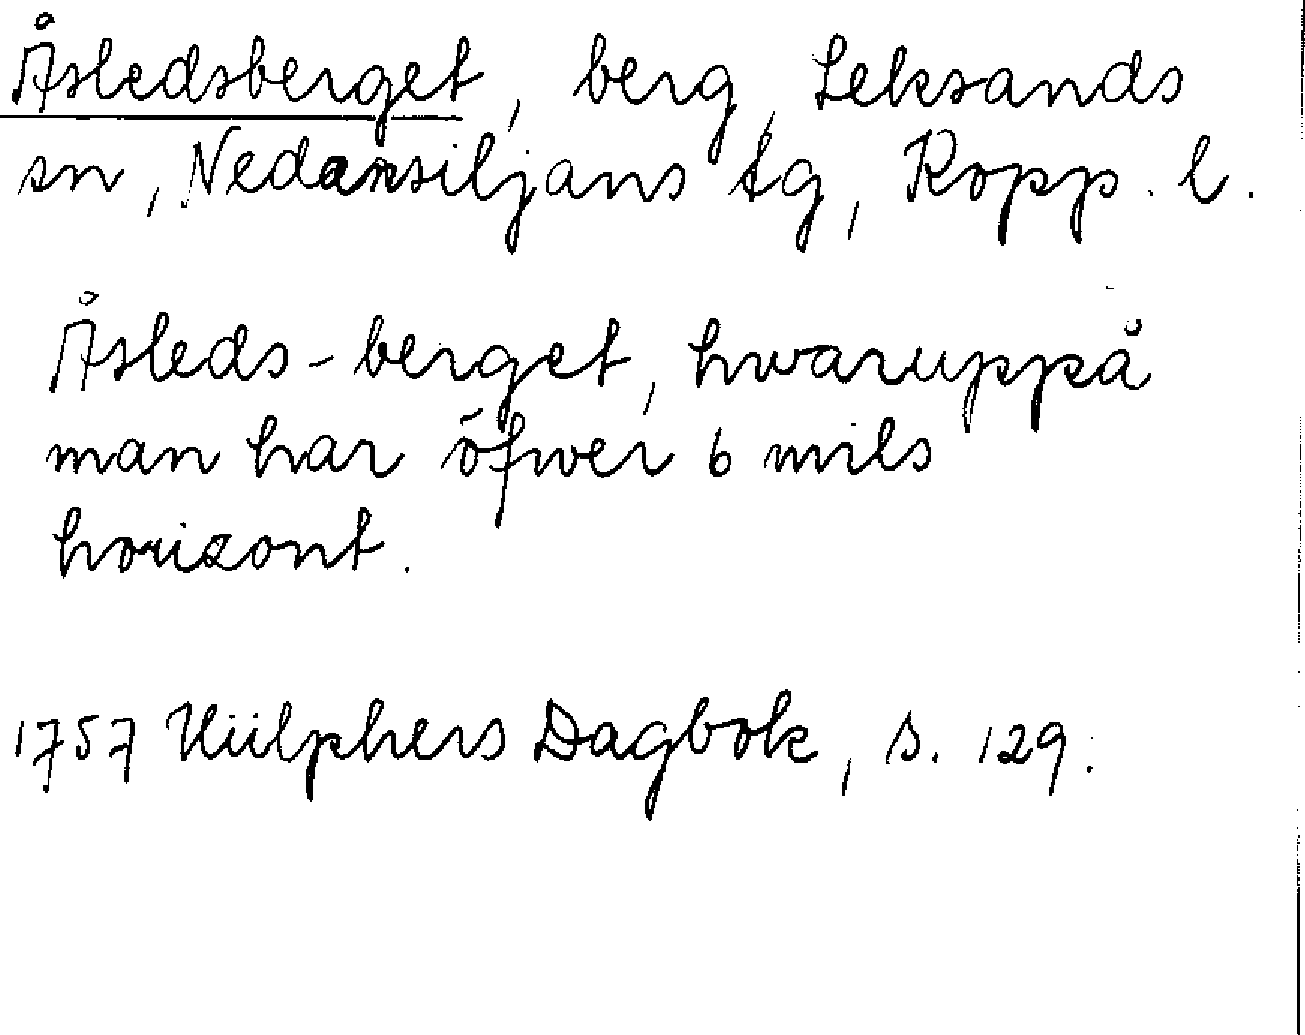 Åsledsberget, berg, Leksands
sn, Nedansiljans tg, Kopp. l.
Åsleds-berget, hwaruppå
man har öfwer 6 mils
horizont.
1757 Hülphers Dagbok, s. 129.